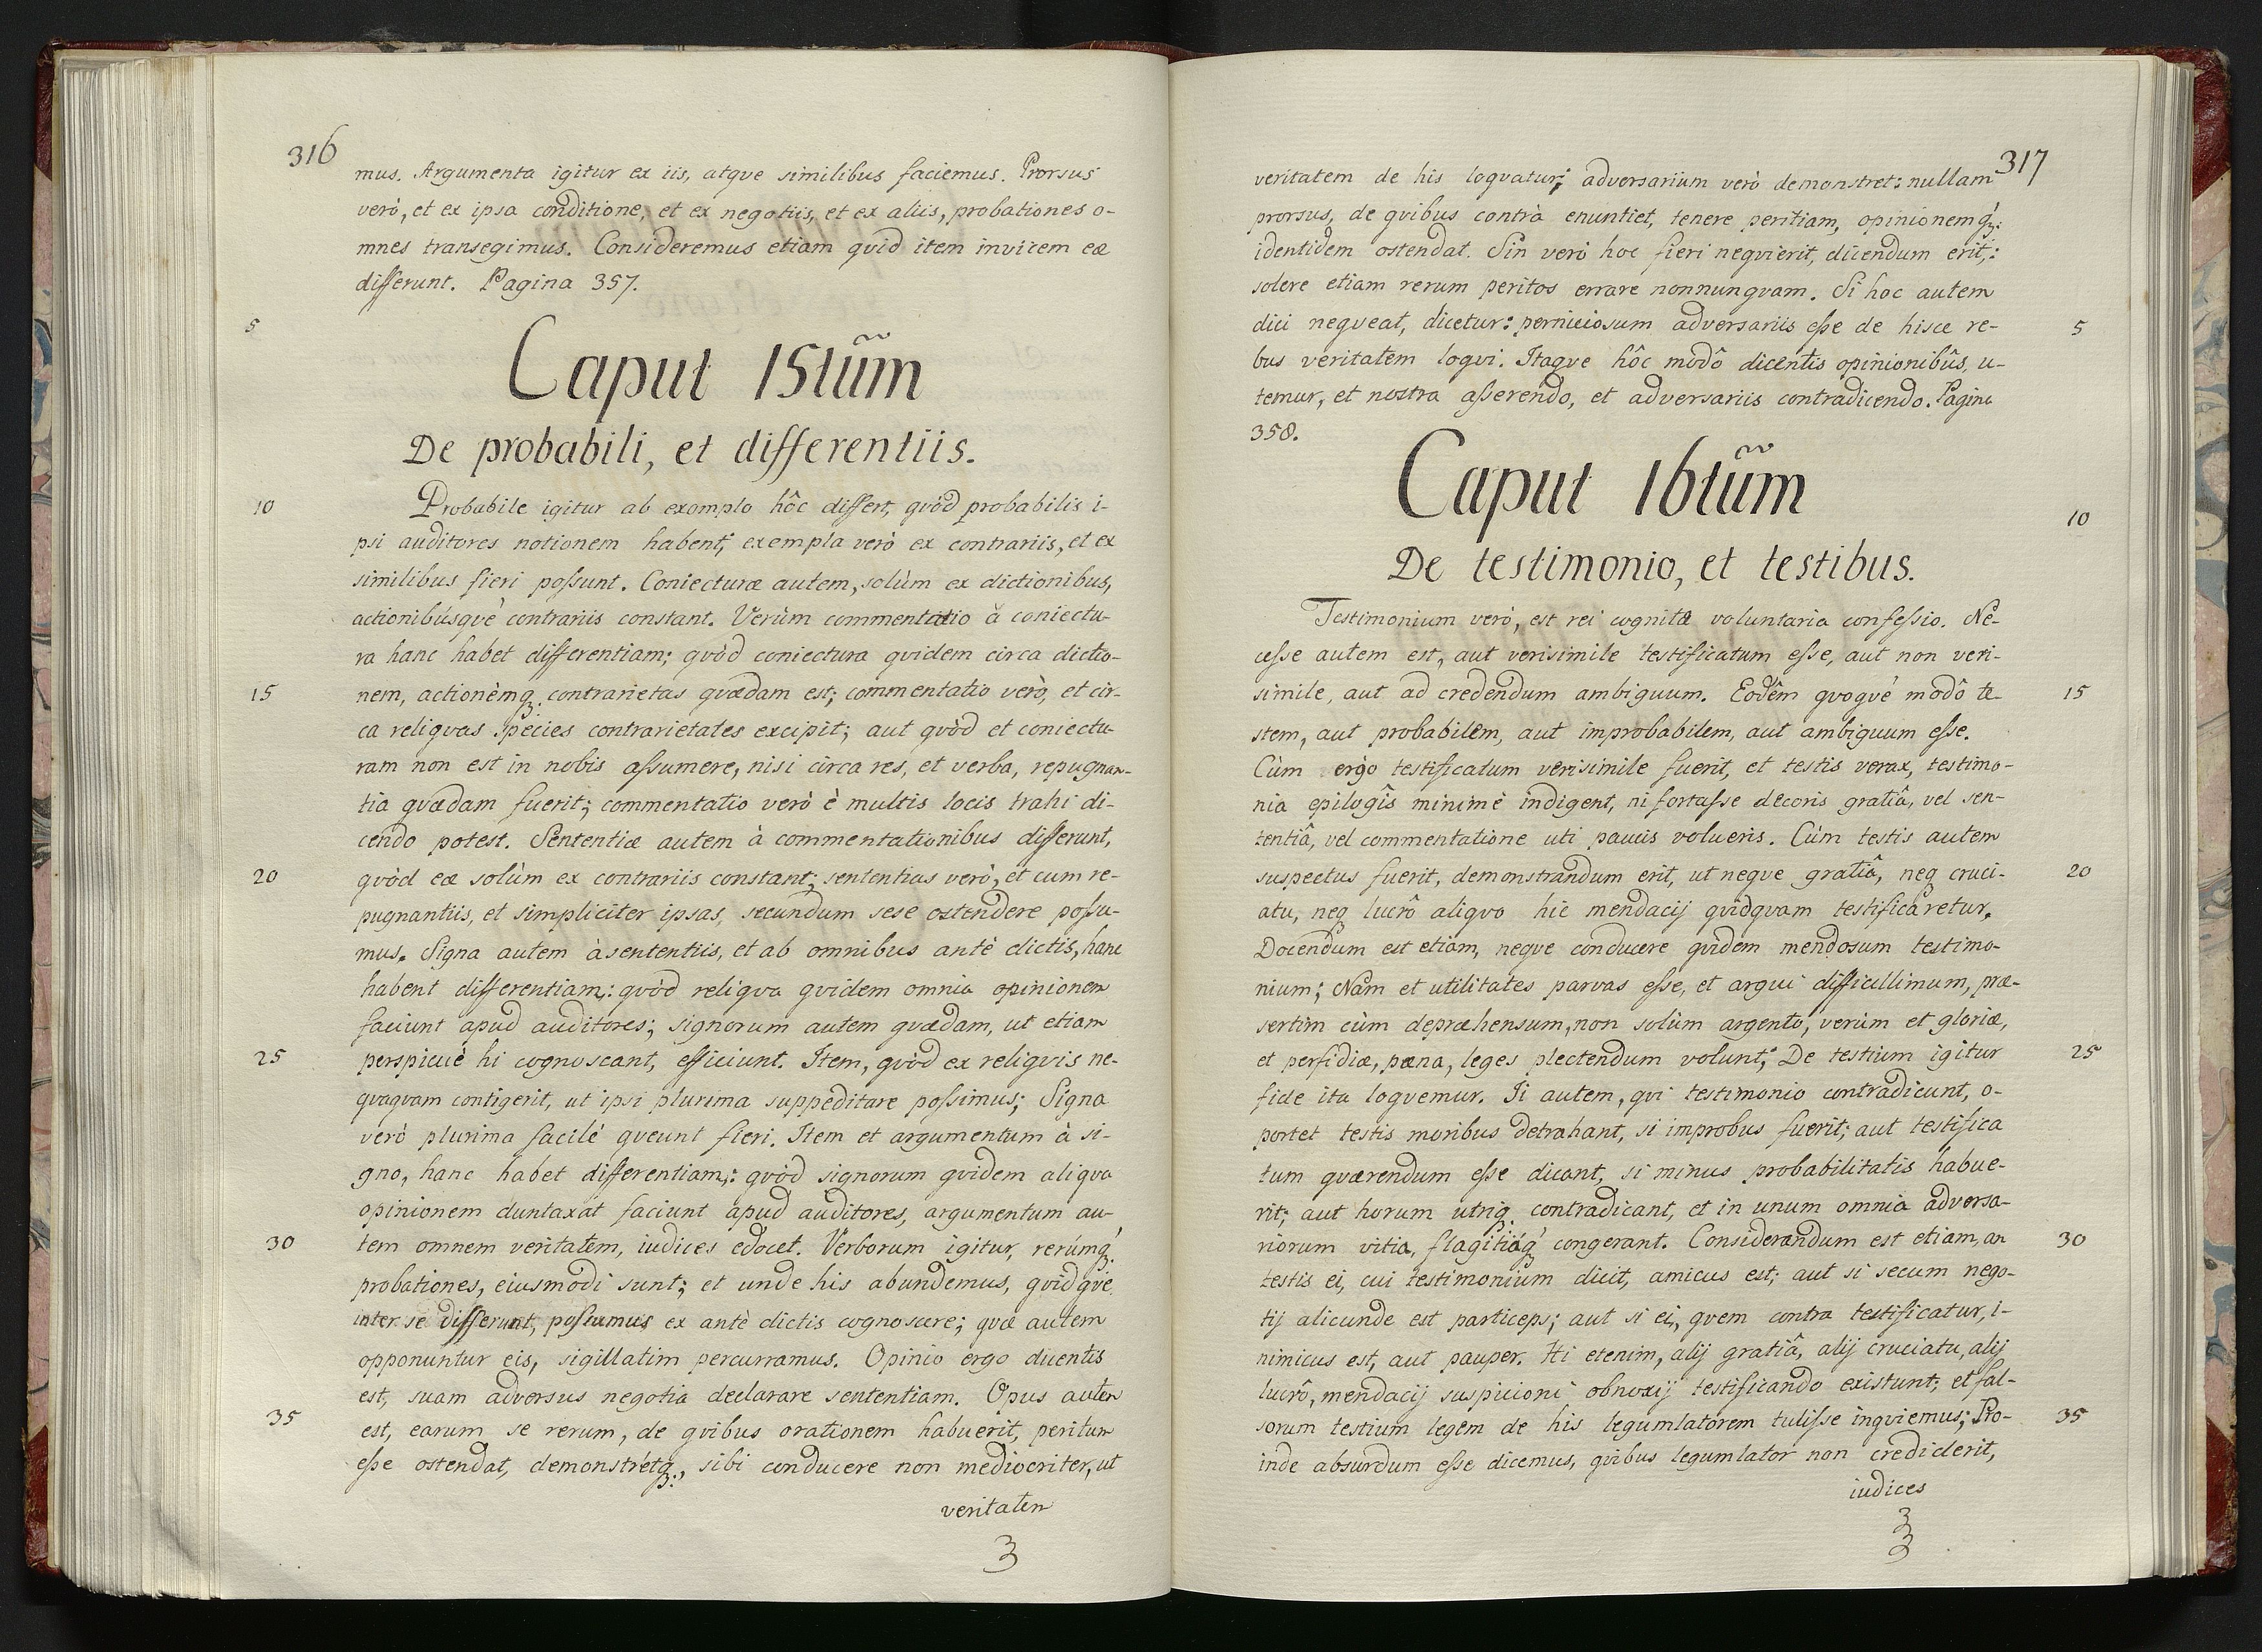 316
mus. Argumenta igitur ex iis, atqve similibus faciemus. Prorsus
verò, et ex ipsa conditione, et ex negotiis, et ex aliis, probationes o-
mnes transegimus. Consideremus etiam qvid item invicem eæ
differunt. Pagina 357.
5
Caput 15tũm
De probabili, et differentiis.
10 Probabile igitur ab exomplo hôc differt, qvòd probabilis i-
psi auditores notionem habent; exempla verò ex contrariis, et ex
similibus fieri poſsunt. Coniecturæ autem, solùm ex dictionibus,
actionibúsqvè contrariis constant. Verùm commentatio à coniectu-
ra hanc habet differentiam; qvòd coniectura qvidem circa dictio-
15 nem, actionèmqꝫ. contrarietas qvædam est; commentatio verò, et cir-
ca reliqvas species contrarietates excipit; aut qvòd et coniectu-
ram non est in nobis aſsumere, nisi circa res, et verba, repugnan-
tia qvædam fuerit; commentatio verò è multis locis trahi di-
cendo potest. Sententiæ autem à commentationibus differunt,
20 qvòd eæ solùm ex contrariis constant; sententias verò, et cum re-
pugnantiis, et simpliciter ipsas, secundum sese ostendere poſsu-
mus. Signa autem à sententiis, et ab omnibus antè dictis, hanc
habent differentiam,: qvòd reliqva qvidem omnia opinionem
faciunt apud auditores; signorum autem qvædam, ut etiam
25 perspicuè hi cognoscant, efficiunt. Item, qvòd ex reliqvis ne-
qvaqvam contigerit, ut ipsi plurima suppeditare poſsimus; Signa
verò plurima facilè qveunt fieri. Item et argumentum à si-
gno, hanc habet differentiam,: qvòd signorum qvidem aliqva
opinionem duntaxat faciunt apud auditores, argumentum au-
30 tem omnem veritatem, iudices edocet. Verborum igitur, rerúmqꝫ́.
probationes, eiusmodi sunt; et unde his abundemus, qvidqve
inter se differunt, poſsumus ex antè dictis cognoscere; qvæ autem
opponuntur eis, sigillatim percurramus. Opinio ergo dicentis
est, suam adversus negotia declarare sententiam. Opus autem
35 est, earum se rerum, de qvibus orationem habuerit, peritum
eſse ostendat, demonstrétqꝫ., sibi conducere non mediocriter, ut
veritatem
317
veritatem de his loqvatur; adversarium verò demonstret: nullam
prorsus, de qvibus contrà enuntiet, tenere peritiam, opinionemqꝫ́.
identidem ostendat. Sin verò hoc fieri neqvierit, dicendum erit,:
solere etiam rerum peritos errare nonnunqvam. Si hoc autem
dici neqveat, dicetur: perniciosum adversariis eſse de hisce re- 5
bus veritatem loqvi. Itaqve hôc modô dicentis opinionibûs, u-
temur, et nostra aſserendo, et adversariis contradicendo. Pagina
358.
Caput 16tũm
10
De testimonio, et testibus.
Testimonium verò, est rei cognitæ voluntaria confeſsio. Ne-
ceſse autem est, aut verisimile testificatum eſse, aut non veri-
simile, aut ad credendum ambiguum. Eodêm qvoqvé modô te- 15
stem, aut probabilem, aut improbabilem, aut ambiguum eſse.
Cùm ergo testificatum verisimile fuerit, et testis verax, testimo-
nia epilogîs minimè indigent, ni fortaſse decoris gratiâ, vel sen-
tentiâ, vel commentatione uti paucis volueris. Cùm testis autem
suspectus fuerit, demonstrandum erit, ut neqve gratiâ, neqꝫ cruci- 20
atu, neqꝫ lucrô aliqvo hic mendacij qvidqvam testificaretur.
Docendum est etiam, neqve conducere qvidem mendosum testimo-
nium; Nam et utilitates parvas eſse, et argui difficillimum, præ-
sertim cùm depræhensum, non solùm argento, verùm et gloriæ,
et perfidiæ, pæna, leges plectendum volunt; De testium igitur 25
fide ita loqvemur. Ii autem, qvi testimonio contradicunt, o-
portet testis moribus detrahant, si improbus fuerit; aut testifica
tum qværendum eſse dicant, si minus probabilitatis habue-
rit; aut horum utriqꝫ. contradicant, et in unum omnia adversa-
riorum vitia, flagitiáqꝫ́ congerant. Considerandum est etiam, an 30
testis ei, cui testimonium dicit, amicus est; aut si secum nego-
tij alicunde est particeps; aut si ei, qvem contra testificatur, i-
nimicus est, aut pauper. Hi etenim, alij gratiâ, alij cruciatu, alij
lucrô, mendacij suspicioni obnoxij testificando existunt; et fal-
sorum testium legem de his legumlatorem tuliſse inqviemus; Pro- 35
inde absurdum eſse dicemus, qvibus legumlator non crediderit,
iudices